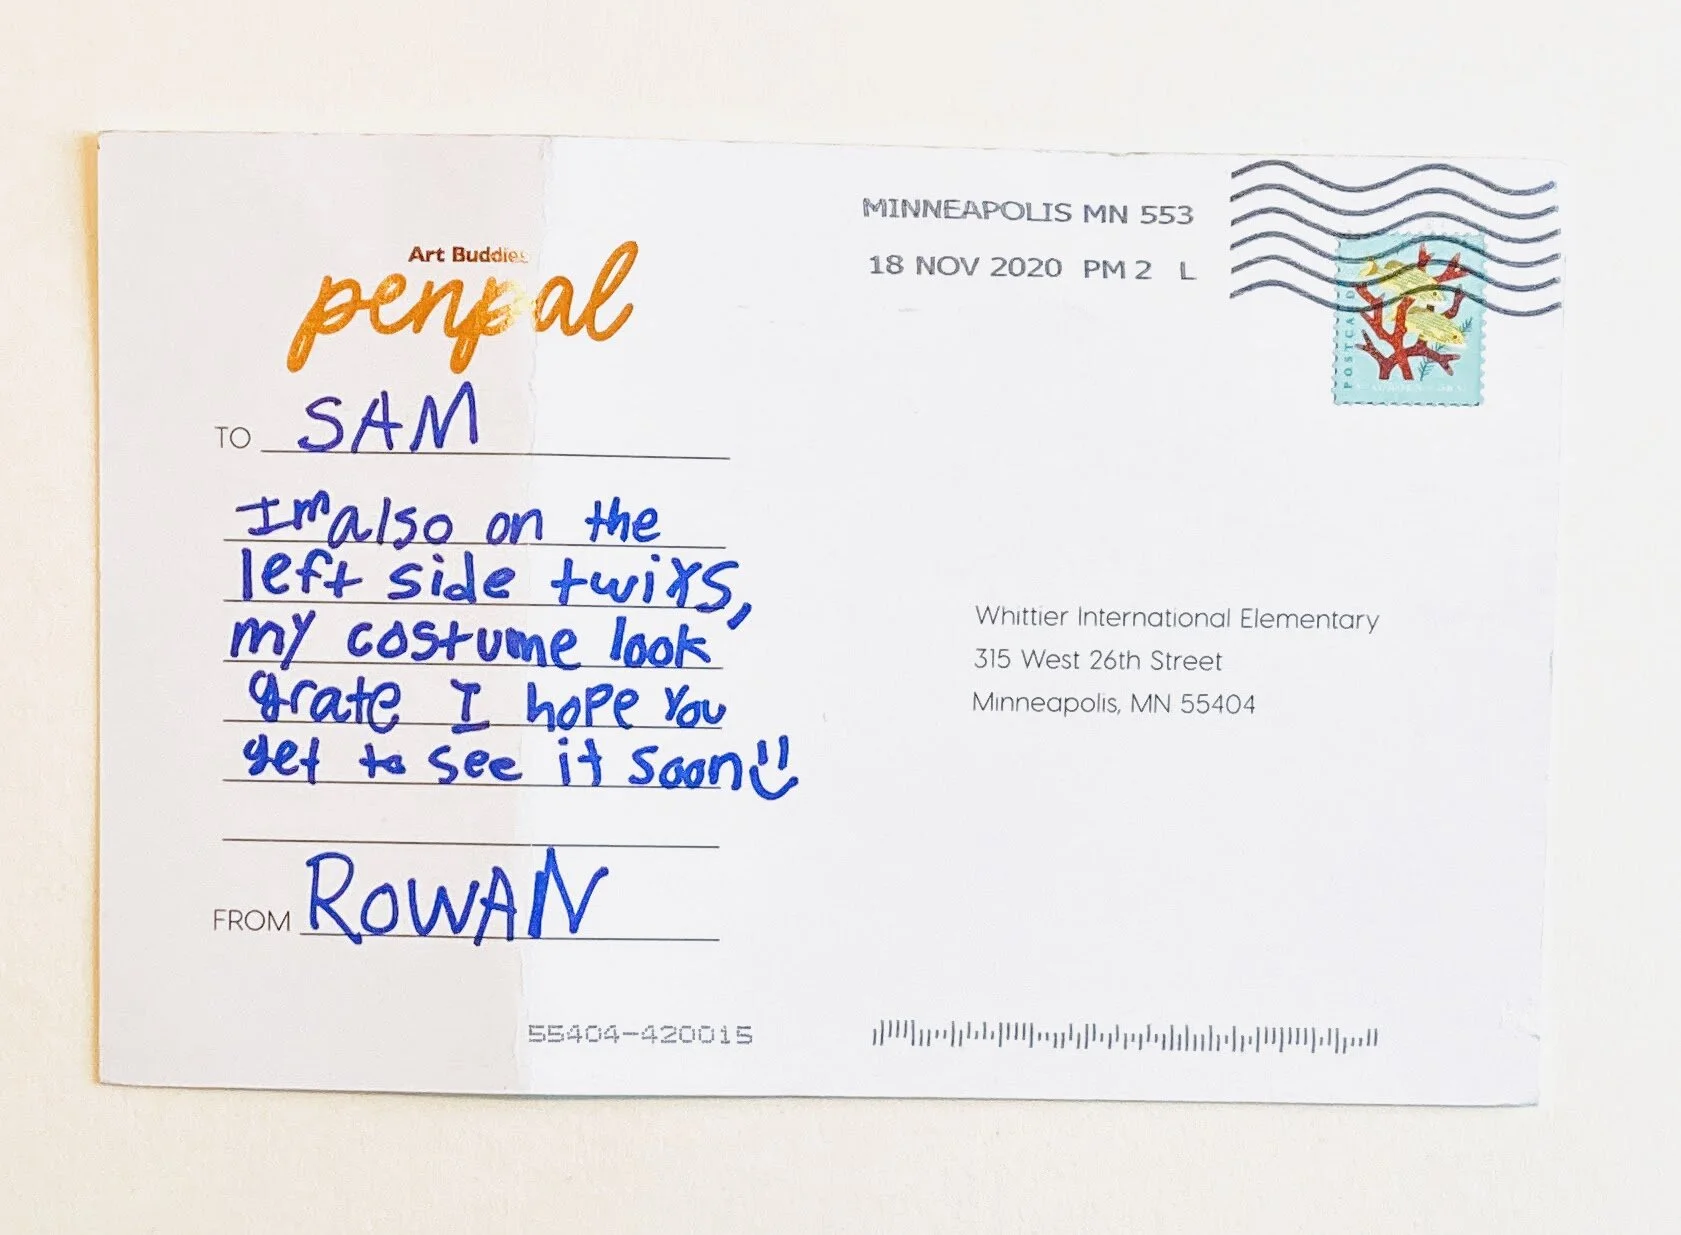 Art Buddies
penpal
TO SAM
Im also on the
left side twixs,
my costume look
grate I hope you
get to see it soon
FROM ROWAN
55404-420015
MINNEAPOLIS MN 553
18 NOV 2020 PM 2 L
POSTCARD
Whittier International Elementary
315 West 26th Street
Minneapolis, MN 55404